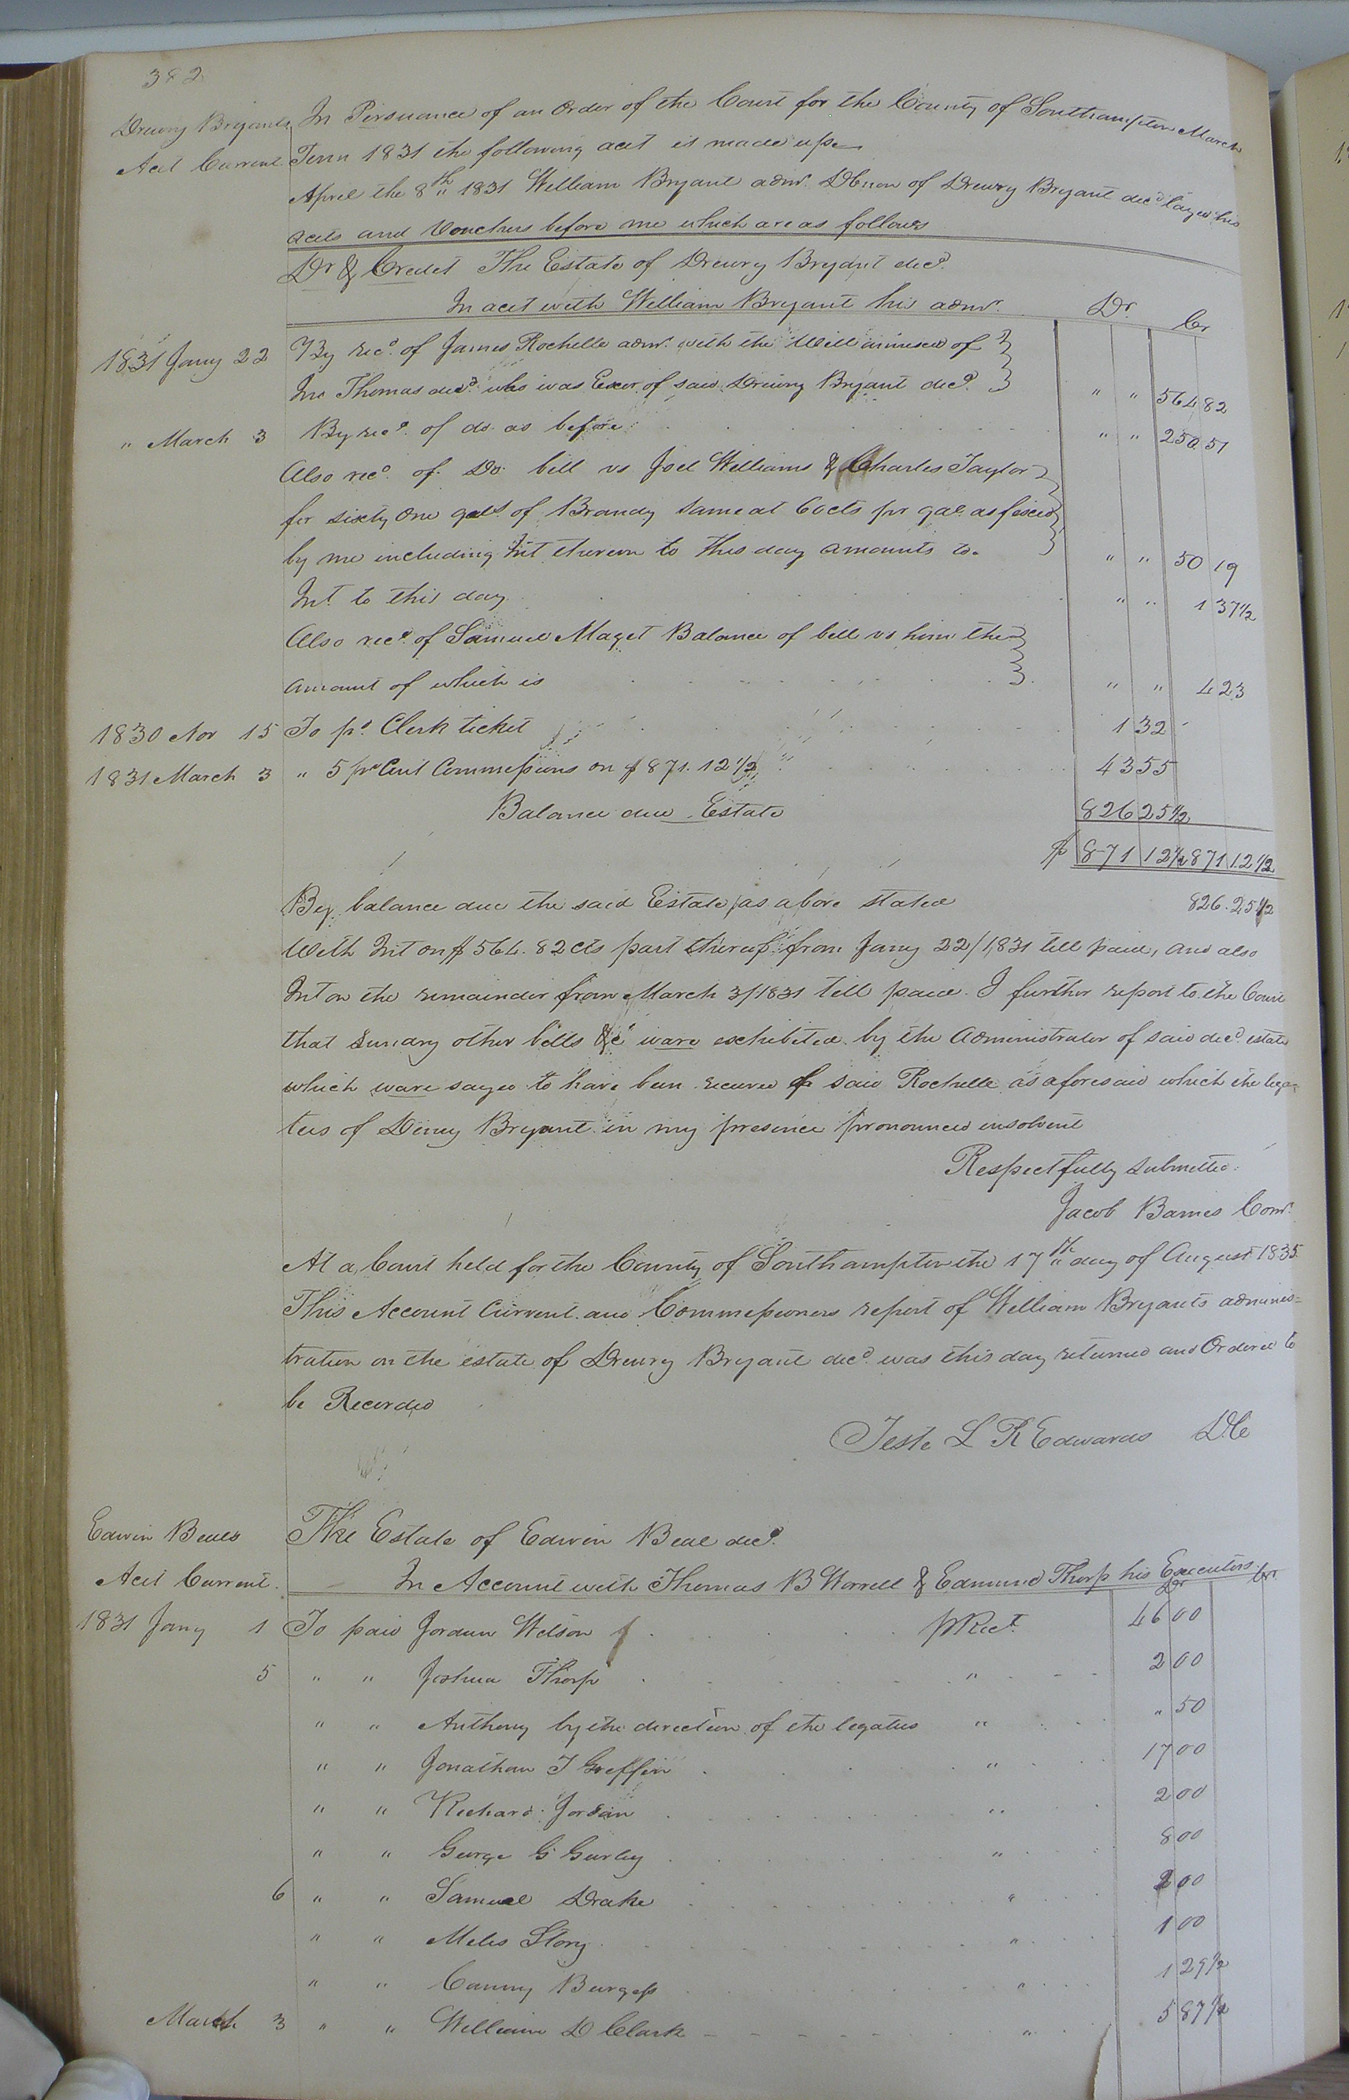 382
Drewry Bryants In Persuance of an order of the Court for the County of Southampton March
Acct Current Term 1831 the following acct is made up
April the 8th 1831 William Bryant admr. Dbnon of Drewry Bryant decd layed his
accts and Vouchers before me which are as follows
Dr & Credet The Estate of Drewry Bryant decd.
In acct with William Bryant his admr. Dr. Cr
1831 Jany 22 By recd. of James Rochelle admr. with the Will annexed of
Jno Thomas decd. who was Exor. of said Drewry Bryant decd. " " 564 82
" March 3 By recd. of do. as before " " 250 51
Also recd. of Do. bill vs Joel Williams & Charles Taylor
for sixty one gals. of Brandy same at 60cts pr gal. as
by me including Int thereon to this day amounts to. " " 50 19
Int. to this day " " 1 37 1/2
Also recd. of Samuel Maget Balance of bill vs him the
amount of which is " " 4 23
1830 Nov 15 To pd. Clerk ticket 1 32
1831 March 3 " 5 pr Cent Commissions on $871.12 1/2 43 55
Balance due Estate 826 25 1/2
$ 871 12 1/2 871 12 1/2
By balance due the said Estate as above stated 826.25 1/2
With Int on $564.82cts part thereof from Jany 22/1831 till paid, and also
Int on the remainder from March 3/1831 till paid. I further report to the Court
that sundry other bills &c ware exhibited by the Administrator of said decd. estate
which ware sayed to have been received of said Rochelle as aforesaid which the lega-
tees of Drewry Bryant in my presence pronounced insolvent
Respectfully submitted.
Jacob Barnes Comr.
At a Court held for the County of Southampton the 17th day of August 1835
This Account Current and Commissioners report of William Bryants adminis=
tration on the estate of Drewry Bryant decd. was this day returned and Ordered to
be Recorded
Teste L R Edwards DC
Edwin Beals The Estate of Edwin Beal decd.
Acct Current. In Account with Thomas B Worrell & Edmund Thorp his Executors. Dr Cr
1831 Jany 1 To paid Jordun Wilson pRect. 46 00
5 " " Joshua Thorp " 2 00
" " Anthony by the direction of the legatees " " 50
" " Jonathan T Griffin " 17 00
" " Richard Jordan " 2 00
" " George G Gurley " 8 00
6 " " Samuel Drake " 2 00
" " Miles Story " 1 00
" " Canny Burgess " 1 29 1/2
March 3 " " William D Clark " 5 87 1/2